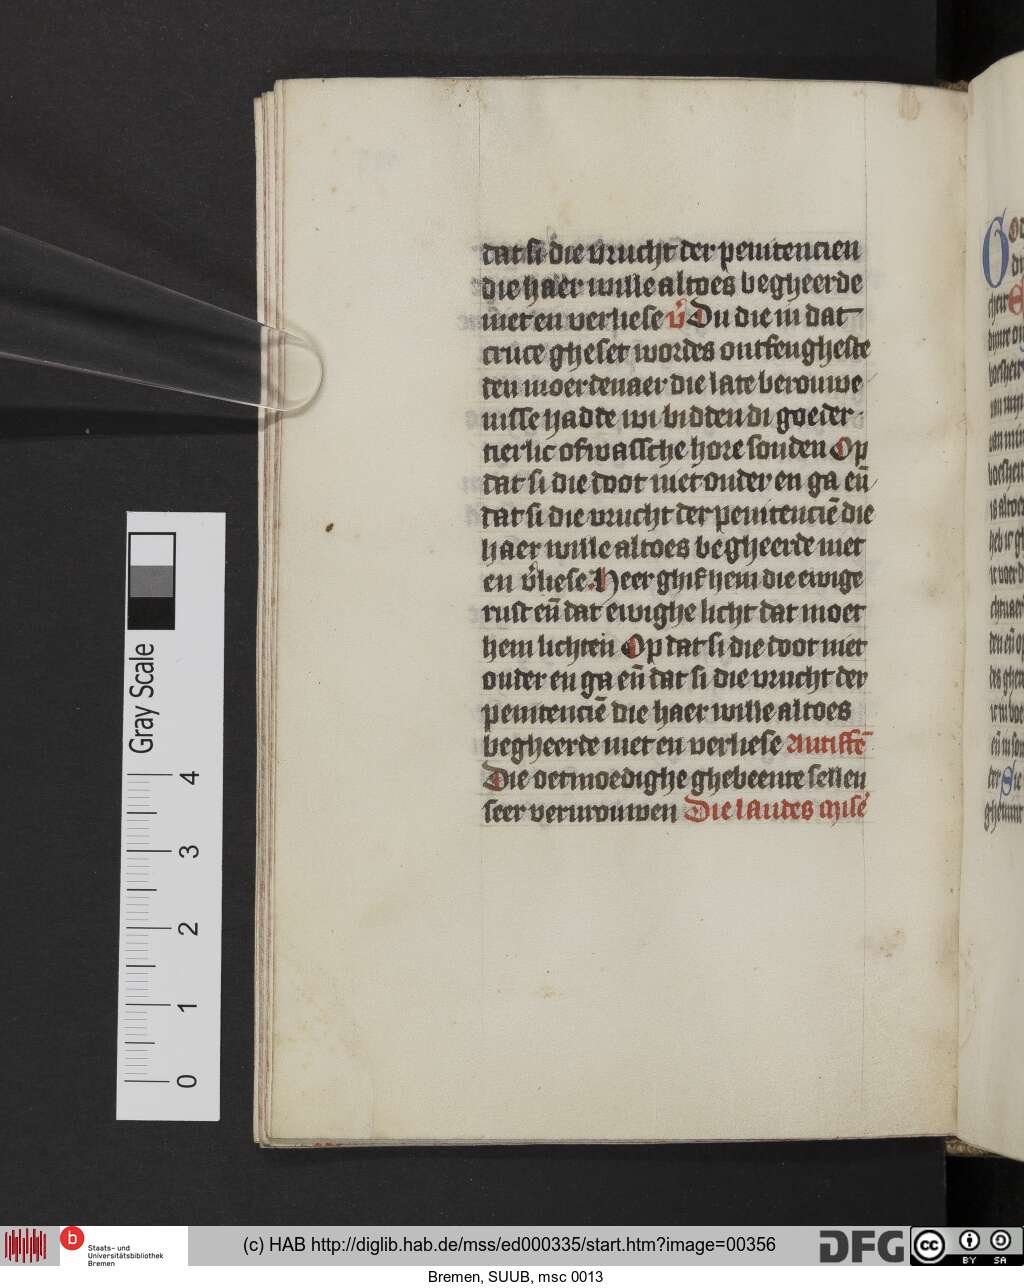 dat si die vrucht der penitencien
die haer wille altoes begheerde
niet en verliese v̉ Du die in dat
cruce gheset wordes ontfengheste
den moerdenaer die late berouwe
nisse hadde wi bidden di goeder
tierlic ofwassche hore sonden Op
dat si die doot niet onder en ga eñ
dat si die vrucht der penitenciē die
haer wille altoes begheerde niet
en v̉liese. Heer ghif hem die ewige
rust eñ dat ewighe licht dat moet
hem lichten Op dat si die doot niet
onder en ga eñ dat si die vrucht der
penitenciē die haer wille altoes
begheerde niet en verliese Antiffē
Die oetmoedighe ghebeente sellen
seer vervrouwen Die laudes misē
Gray Scale
4
3
2
1
0
b
Staats- und
Universitätsbibliothek
Bremen
(c) HAB http://diglib.hab.de/mss/ed000335/start.htm?image=00356
DFG
cc
BY SA
Bremen, SUUB, msc 0013